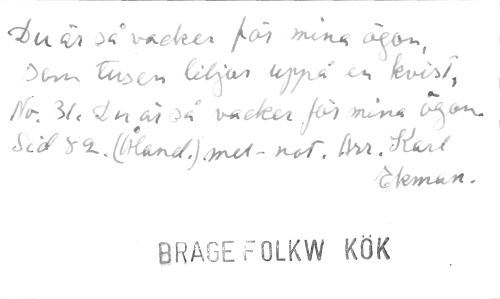 Du är så vacker för mina ögon,
som tusen liljor uppå en kvist,
No. 31. Du är så vacker för mina ögon
Sid 82. (Åland.) mel-not. Arr. Karl
Ekman.
BRAGE FOLKW KÖK